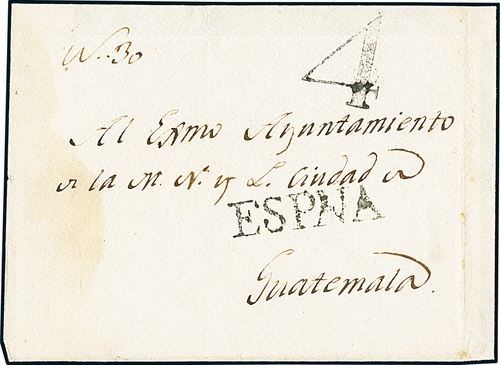 N. 30
4
Al Exmo Ayuntamiento
de la M. N. y L. Ciudad de
ESPNA
Guatemala.